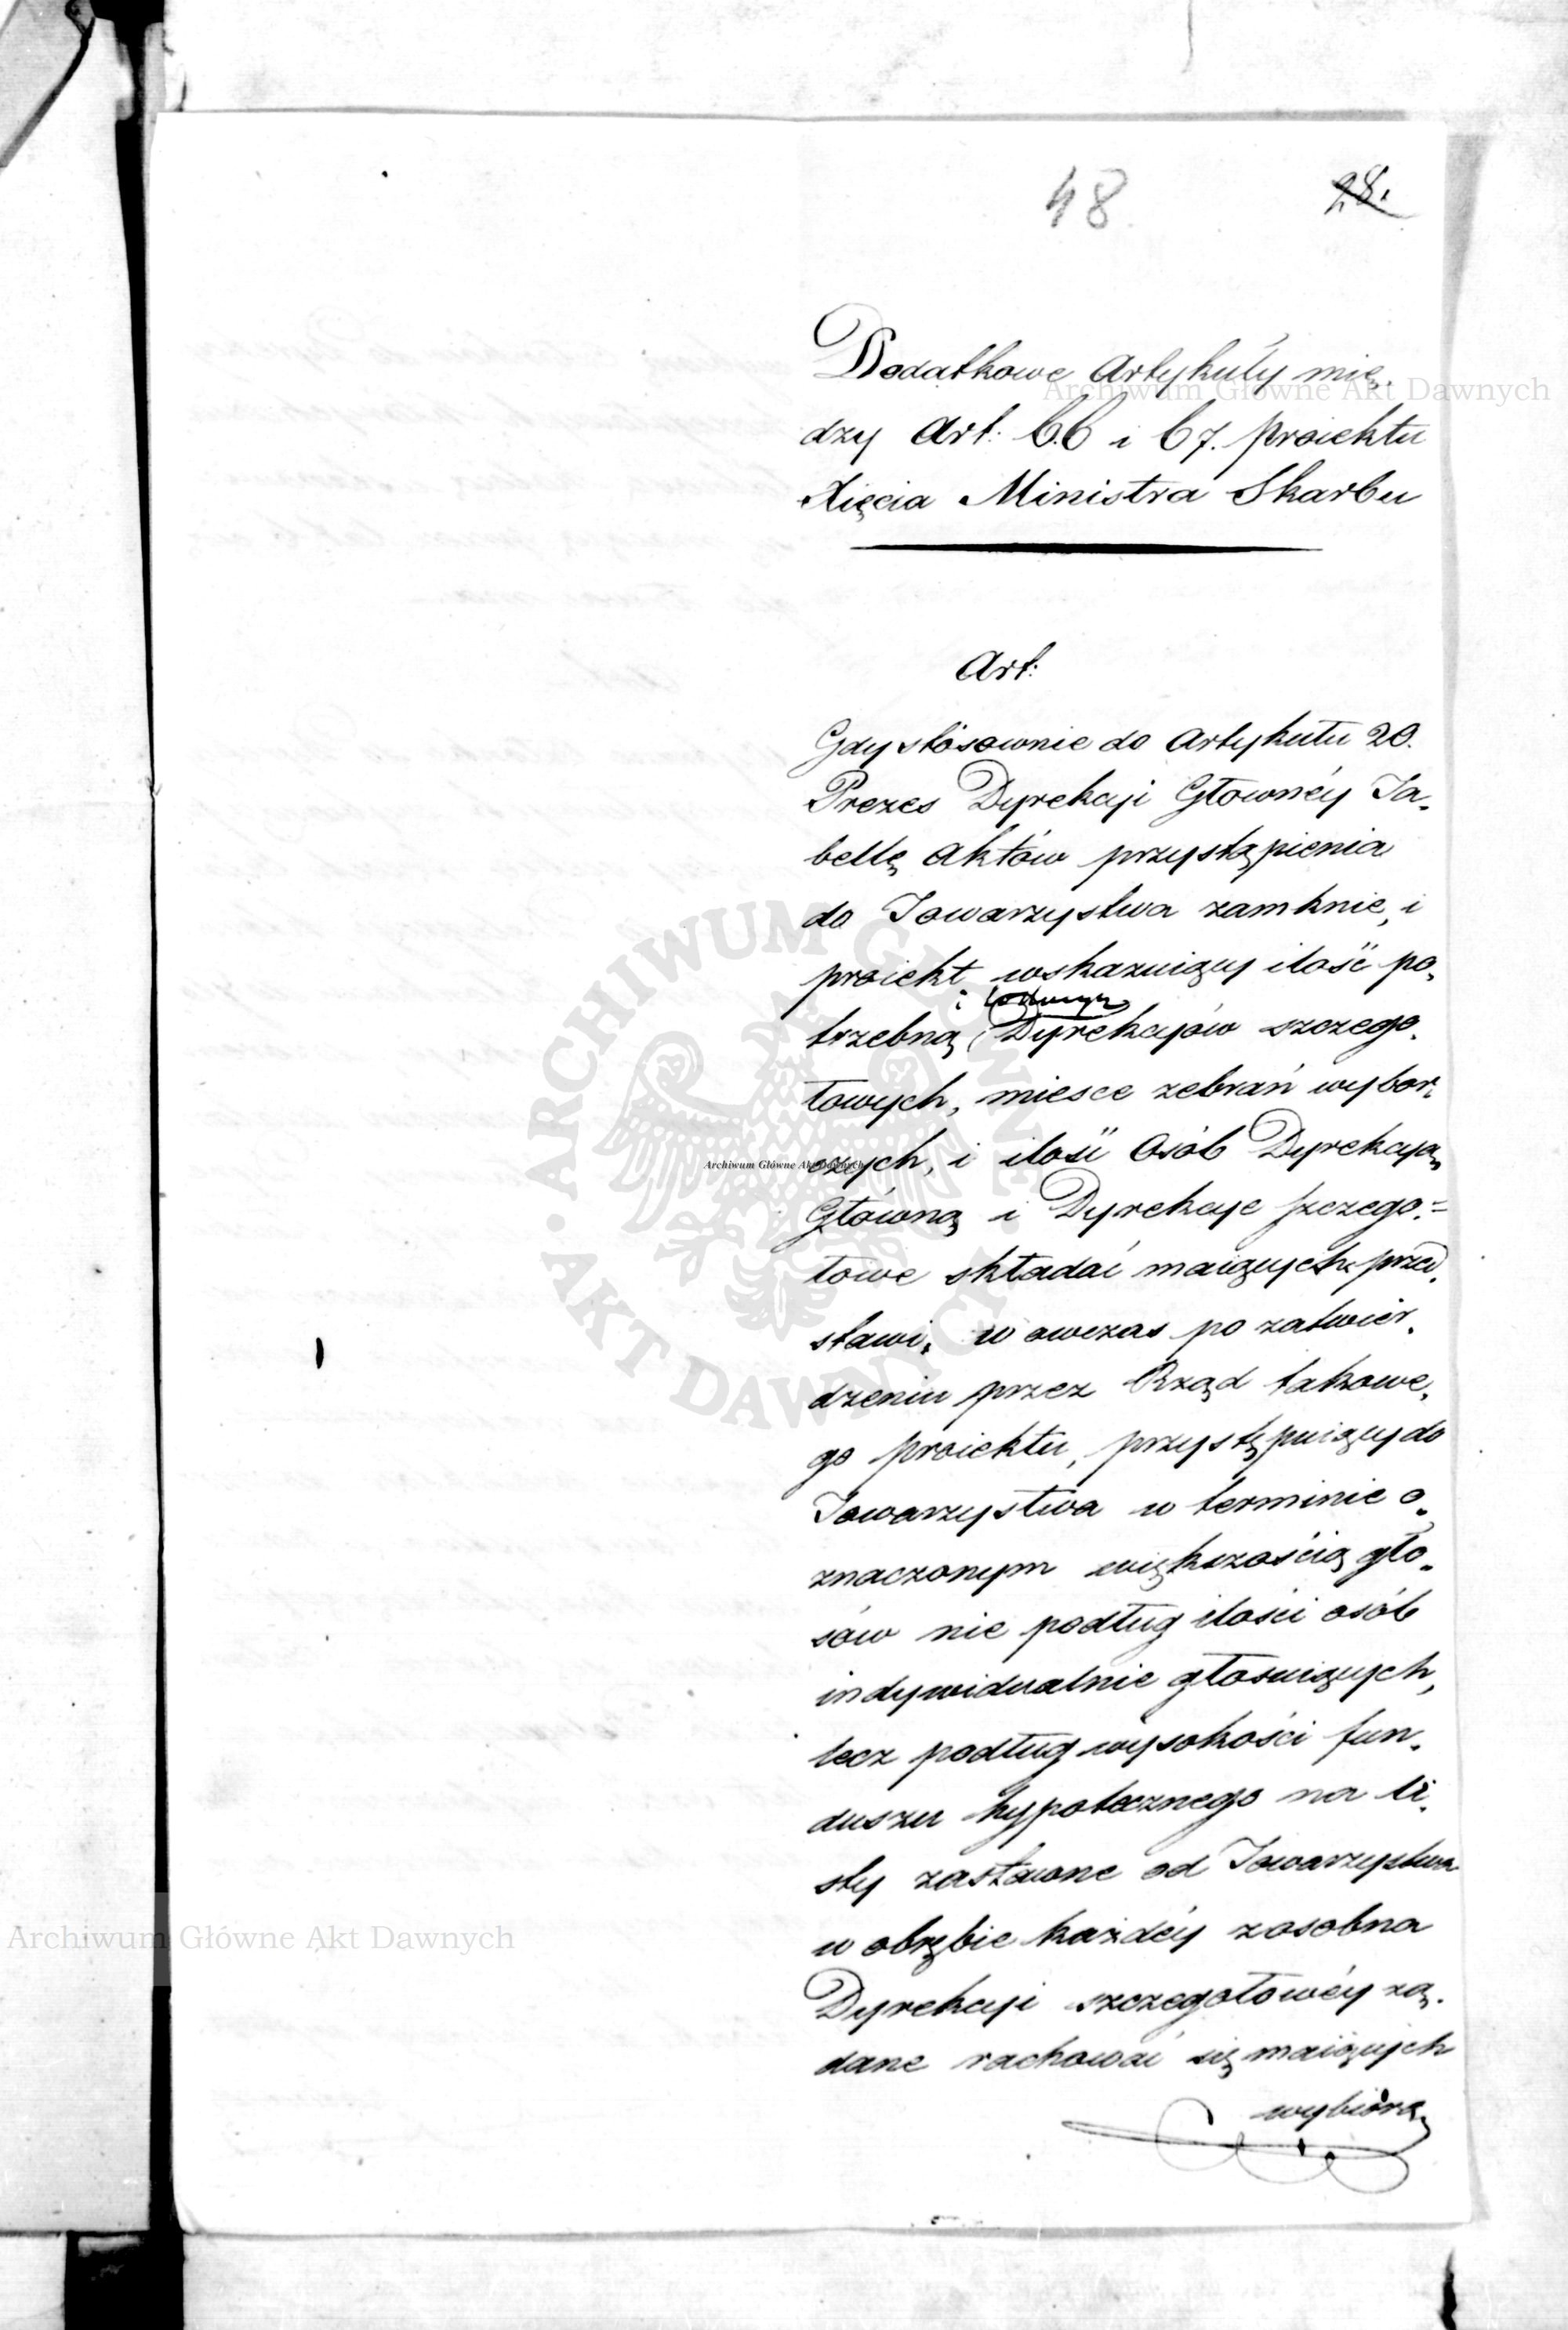 48
28.
Dodatkowe Artykuły mię-
dzy Art: 66 i 67. proiektu
Xięcia Ministra Skarbu
Art:
Gdy stósownie do Artykułu 20.
Prezes Dyrekcyi Głównéy Ta-
bellę Aktów przystąpienia
do Towarzystwa zamknie, i
proiekt wskazuiący ilość po-
trzebną Dyrekcyów szczegó-
łowych, miesce zebrań wybor-
czych, i ilość Osób Dyrekcyą
Główną i Dyrekcye szczegó-
łowe składać maiących przed-
stawi, w owczas po zatwier-
dzeniu przez Rząd takowe-
go proiektu, przystępuiący do
Towarzystwa w terminie o-
znaczonym większością gło-
sów nie podług ilości osób
indywidualnie głosuiących,
lecz podług wysokości fun-
duszu hypotecznego na li-
sty zastawne od Towarzystwa
w obrębie każdéy zosobna
Dyrekcyi szczegółowéy żą-
dane rachować się maiących
wybiorą
Archiwum Główne Akt Dawnych
Archiwum Główne Akt Dawnych
Archiwum Główne Akt Dawnych
ARCHIWUM GŁÓWNE AKT DAWNYCH